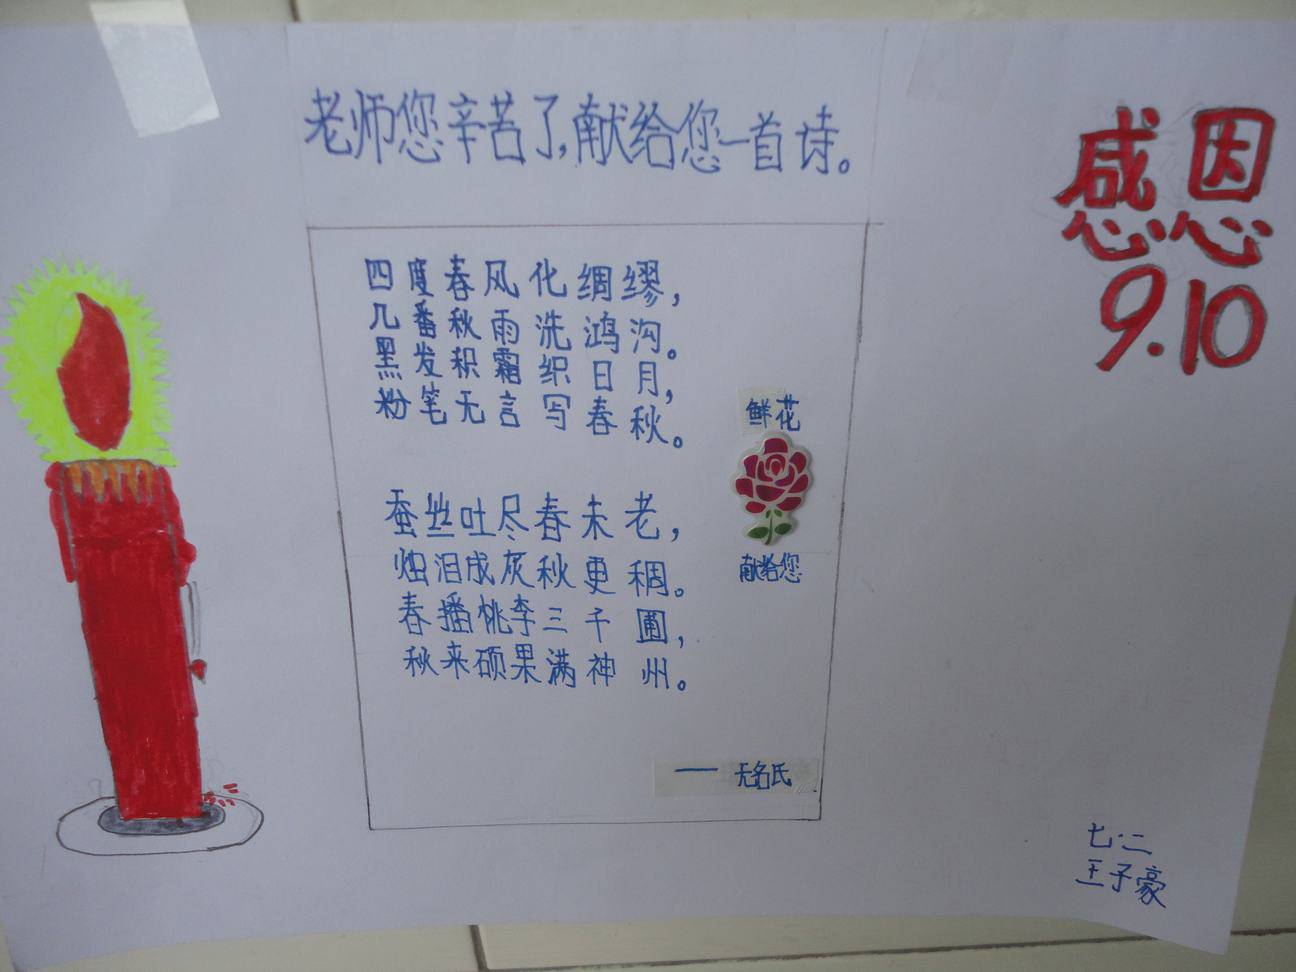 老师您辛苦了,献给您一首诗。
感恩
9.10
四度春风化绸缪,
几番秋雨洗鸿沟。
黑发积霜织日月,
粉笔无言写春秋。
鲜花
献给您
蚕丝吐尽春未老,
烛泪成灰秋更稠。
春播桃李三千圃,
秋来硕果满神州。
—— 无名氏
七·二
王子豪